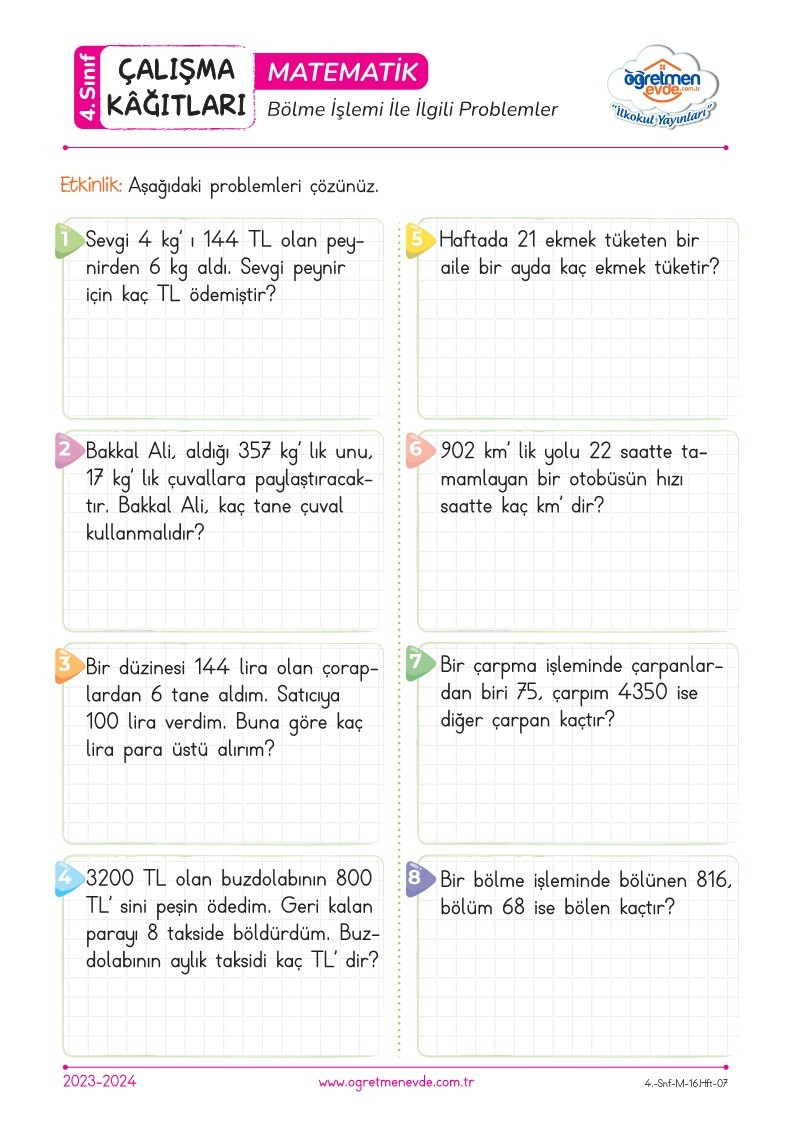 4. Sınıf
ÇALIŞMA
KÂĞITLARI
MATEMATİK
Bölme İşlemi İle İlgili Problemler
öğretmen
evde.com.tr
"İlkokul Yayınları"
Etkinlik: Aşağıdaki problemleri çözünüz.
1
Sevgi 4 kg' ı 144 TL olan pey-
nirden 6 kg aldı. Sevgi peynir
için kaç TL ödemiştir?
2
Bakkal Ali, aldığı 357 kg' lık unu,
17 kg' lık çuvallara paylaştıracak-
tır. Bakkal Ali, kaç tane çuval
kullanmalıdır?
3
Bir düzinesi 144 lira olan çorap-
lardan 6 tane aldım. Satıcıya
100 lira verdim. Buna göre kaç
lira para üstü alırım?
4
3200 TL olan buzdolabının 800
TL' sini peşin ödedim. Geri kalan
parayı 8 takside böldürdüm. Buz-
dolabının aylık taksidi kaç TL' dir?
5
Haftada 21 ekmek tüketen bir
aile bir ayda kaç ekmek tüketir?
6
902 km' lik yolu 22 saatte ta-
mamlayan bir otobüsün hızı
saatte kaç km' dir?
7
Bir çarpma işleminde çarpanlar-
dan biri 75, çarpım 4350 ise
diğer çarpan kaçtır?
8
Bir bölme işleminde bölünen 816,
bölüm 68 ise bölen kaçtır?
2023-2024
www.ogretmenevde.com.tr
4.-Snf-M-16.Hft-07